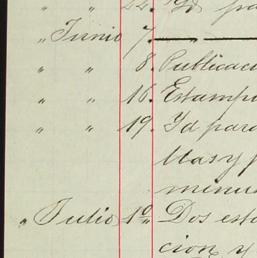 " " 22. Id pa
" Junio 7. — —
" " 8. Publicaci
" " 16. Estamp
" " 19. Id para
llas y p
minu
" Julio 1º Dos esta
cion y